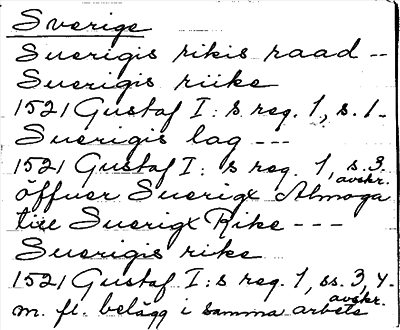 Sverige
Suerigis rikis raad --
Suerigis riike
1521 Gustaf I:s reg. 1, s. 1.
Suerigis lag ---
1521 Gustaf I:s reg. 1, s. 3.
avskr.
öffuer Suerigx Almoga
till Suerigx Rike ---
Suerigis rike
1521 Gustaf I:s reg. 1, ss. 3, 4.
avskr.
m. fl. belägg i samma arbete